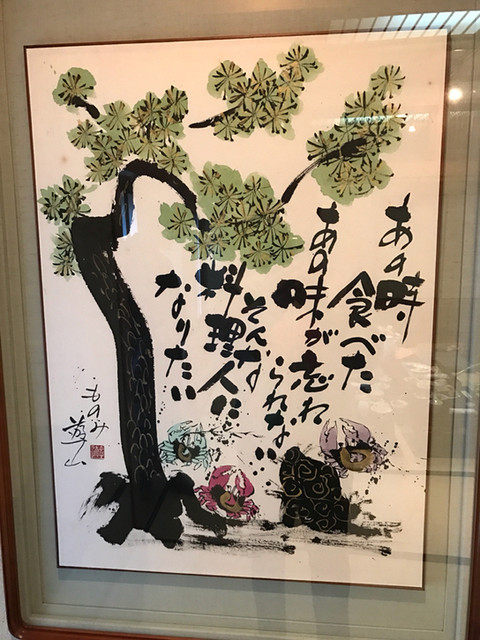 あの時
食べた
あの味が忘れ
られない
そんな
料理人に
なりたい
ものみ